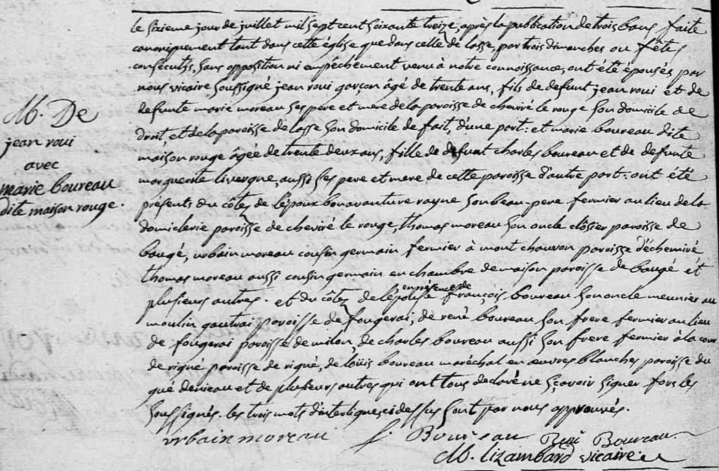 M. De
jean roui
avec
marie boureau
dite maison rouge.
le sixieme jour de juillet mil sept cent soixante treize, après la publication de trois bans faite
canoniquement tant dans cette église que dans celle de losse, par trois dimanches ou fêtes
consécutifs, sans opposition ni empêchement venu à notre connoissance, ont été épousés par
nous vicaire soussigné jean roui garçon âgé de trente ans, fils de defunt jean roui et de
defunte marie moreau ses pere et mere de la paroisse de cheviré le rouge son domicile de
droit, et de la paroisse de losse son domicile de fait, d'une part: et marie boureau dite
maison rouge âgée de trente deux ans, fille de defunt charles boureau et de defunte
marguerite livergne, aussi ses pere et mere de cette paroisse d'autre part: ont été
présents du côté de l'époux bonaventure rayne son beau-pere fermier au lieu de la
paroisse de cheviré le rouge, thomas moreau son oncle closier paroisse de
baugé, urbain moreau cousin germain fermier à mont chauvon paroisse d'échemiré
thomas moreau aussi cousin germain en chambre de maison paroisse de baugé et
plusieurs autres. et du côté de l'épouse en présence de françois boureau son oncle meunier au
moulin gautrai paroisse de fougerai, de rené boureau son frere fermier au lieu
de fougerai paroisse de milon, de charles boureau aussi son frere fermier à la cour
de rigné paroisse de rigné, de loüis boureau maréchal en œuvres blanches paroisse du
gué deniau et de plusieurs autres qui ont tous declaré ne sçavoir signer fors les
soussignés. les trois mots d'interligne ci dessus sont par nous approuvés.
urbain moreau f. Boureau René Boureau
M. lizambard vicaire